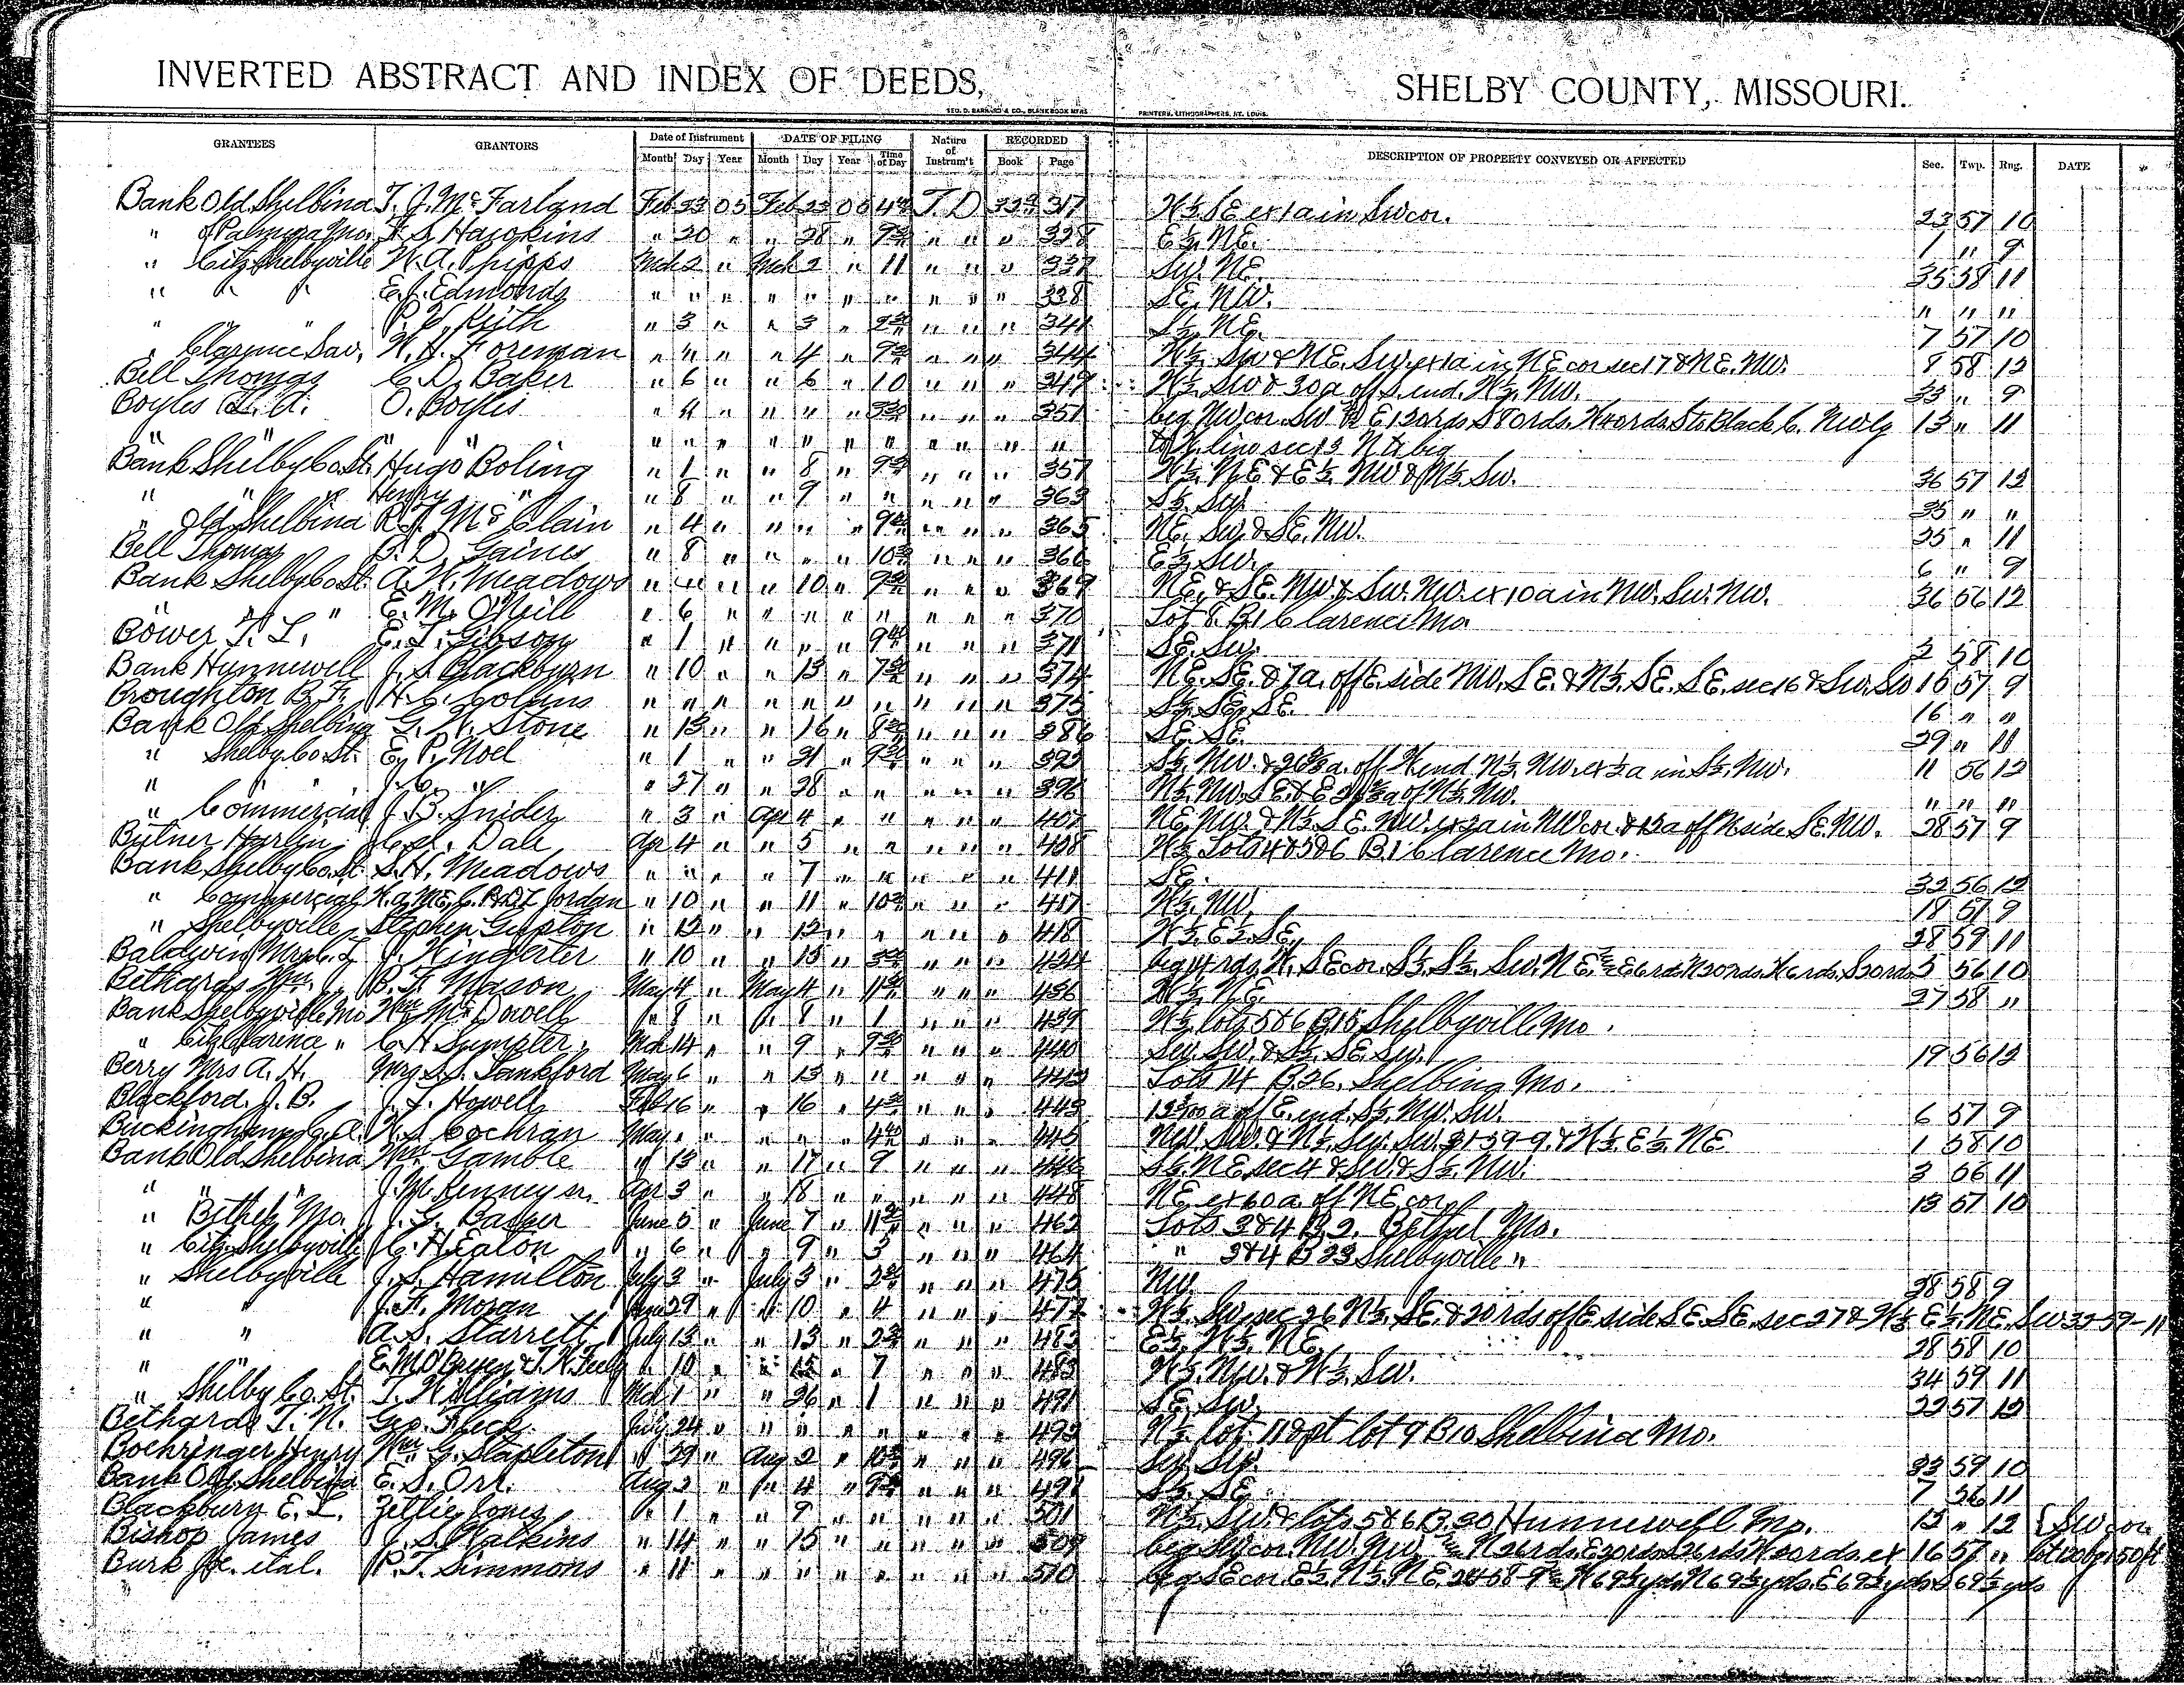 INVERTED ABSTRACT AND INDEX OF DEEDS, SHELBY COUNTY, MISSOURI.
GEO. D. BARNARD & CO., BLANK BOOK MFRS PRINTERS, LITHOGRAPHERS, ST. LOUIS.
GRANTEES GRANTORS Date of Instrument DATE OF FILING Nature of Instrum't RECORDED DESCRIPTION OF PROPERTY CONVEYED OR AFFECTED Sec. Twp. Rng. DATE
Month Day Year Month Day Year Time of Day Book Page
Bank Old Shelbina T. J. McFarland Feb 23 05 Feb 23 05 T. D 317 W½ SE ex 1a in SW cor. 23 57 10
" of Palmyra Mo. F. S. Hawkins " 20 " " 28 " " " " 328 E½ NE. 1 " 9
" Citz Shelbyville W. A. Phipps Mch 2 " Mch 2 " 11 " " " 337 SW. NE. 35 58 11
" " " E. C. Edmonds " " " " " " " " " " 338 SE. NW. " " "
" " P. V. Keith " 3 " " 3 " " " " 341 S½ NE. 7 57 10
" Clarence Sav. W. H. Foreman " 4 " " 4 " " " " 344 W½ SW & NE. SW. ex 1a in NE cor sec 17 & NE. NW. 8 58 12
Bell Thomas C. D. Baker " 6 " " 6 " 10 " " " 349 W½ SW & 30a off S. end. W½ NW. 33 " 9
Boyles L. A. O. Boyles " 4 " " " " " " " 351 beg NW cor. SW E 120rds S 80rds. W 40rds. S to Black C. NWly 13 " 11
" " " " " " " " " " " " " " to W. line sec 13 N to beg
Bank Shelby Co. St. Hugo Boling " 1 " " 8 " " " " 357 W½ NE & E½ NW & N½ SW. 36 57 12
" " " Henry " " 8 " " 9 " " " " " 363 S½ SW. 35 " "
" Old Shelbina R. J. McClain " 4 " " " " " " " 365 NE. SW & SE. NW. 25 " 11
Bell Thomas B. D. Gaines " 8 " " " " " " " 366 E½ SW. 6 " 9
Bank Shelby Co. St. A. W. Meadows " 4 " " 10 " " " " 369 NE. & SE. NW. & SW. NW. ex 10a in NW. SW. NW. 36 56 12
" " E. M. O'Neill " 6 " " " " " " " " 370 Lot 8. B1 Clarence Mo.
Bower T. L. E. T. Gibson " 1 " " " " " " " 371 SE. SW. 2 58 10
Bank Hunnewell J. S. Blackburn " 10 " " 13 " " " " 374 NE. SE. & 7a. off E. side NW. SE. & N½ SE. SE. sec 16 & SW. SW 15 57 9
Broughton B. F. H. C. Collins " " " " " " " " " " 375 S½ SE. SE. 16 " "
Bank Old Shelbina G. W. Stone " 13 " " 16 " " " " 386 SE. SE. 29 " 11
" Shelby Co. St. E. P. Noel " 1 " " 21 " " " " 392 S½ NW. & 26⅔a. off W end N½ NW. ex ½a in S½ NW. 11 56 12
" J. C. " " 27 " " 28 " " " " " 396 " " "
" Commercial J. B. Snider " 3 " Apr 4 " " " " " 407 28 57 9
Butner Harlin C. A. Dale Apr 4 " " 5 " " " " " 408 W½ Lots 4 & 5 & 6 B1 Clarence Mo.
Bank Shelby Co. St. S. H. Meadows " " " " 7 " " " " " 411 SE. 32 56 12
" Commercial Jordan " 10 " " 11 " " " " 417 W½ NW. 18 57 9
" Shelbyville Stephen Gupton " 12 " " 12 " " " " " 418 W½ E½ SE. 28 59 11
Baldwin Mrs. C. L. J. Wingerter " 10 " " 15 " " " " 424 5 56 10
Bethards Wm. J. B. F. Mason May 4 " May 4 " " " " 436 W½ NE. 27 58 "
Bank Shelbyville Mo Wm McDowell " 8 " " 8 " 1 " " " 439 W½ lots 5 & 6 B 15 Shelbyville Mo.
" Citz Clarence " C. H. Sumpter Mch 14 " " 9 " " " " 440 SW. SW. & S½ SE SW. 19 56 12
Berry Mrs A. H. Mrs S. S. Lankford May 6 " " 13 " " " " " 442 Lots 14 B. 26. Shelbina Mo.
Blackford J. B. J. T. Howell Feb 16 " " 16 " " " " 443 off E. end. S½ NW. SW. 6 57 9
Buckingham C. A. W. S. Cochran May " " " " " " " " 445 NW. SW. & N½ SW. SW. 31-59-9. & W½ E½ NE 1 58 10
Bank Old Shelbina Wm Gamble " 15 " " 17 " 9 " " " 446 S½ NE sec 4 & SW. & S½ NW. 3 56 11
" " J. M. Kenney sr. Apr 3 " " 18 " " " " " 448 NE ex 60a. off NE cor 13 57 10
" Bethel Mo. J. G. Bauer June 5 " June 7 " " " " 462 Lots 3 & 4 B 2. Bethel Mo.
" Citz. Shelbyville C. H. Eaton " 6 " " 9 " 3 " " " 464 " 3 & 4 B 23 Shelbyville "
" Shelbyville J. S. Hamilton July 3 " July 3 " " " " 475 NW. 28 58 9
" " J. F. Moran June 29 " " 10 " 4 " " " 477 W½ SW. sec 26 N½ SE. & 20rds off E side SE. SE. sec 27 & W½ E½ NE. SW 35-59-11
" " A. S. Starrett July 13 " " 13 " " " " 482 E½ W½ NE. 28 58 10
" E. M. O'Bryen & T. W. Feely " 10 " " 15 " 7 " " " 483 W½ NW. & W½ SW. 34 59 11
" Shelby Co. St. T. Williams Mch 1 " " 26 " 1 " " " 491 SE. SW. 22 57 12
Bethards T. N. Geo. Fleck July 24 " " " " " " " " 492 N½ lot 11 & pt lot 9 B 10 Shelbina Mo.
Boehringer Henry Wm G. Stapleton " 29 " Aug 2 " " " " 496 SW. SW. 33 59 10
Bank Old Shelbina E. S. Orr. Aug 2 " " 4 " " " " 497 S½ SE. 7 56 11
Blackburn E. L. Zettie Jones " 1 " " 9 " " " " " 501 N½ SW. & lots 5 & 6 B. 30 Hunnewell Mo. 12 " 12 { SW cor
Bishop James J. S. Watkins " 14 " " 15 " " " " " 509 beg SW cor. NW. NW. 16 57 "
Burk J. C. et al. P. T. Simmons " 11 " " " " " " " " 510 beg SE cor. E½ N½ NE. 24-58-9 W 69½ yds. N 69½ yds. E 69½ yds. S 69½ yds